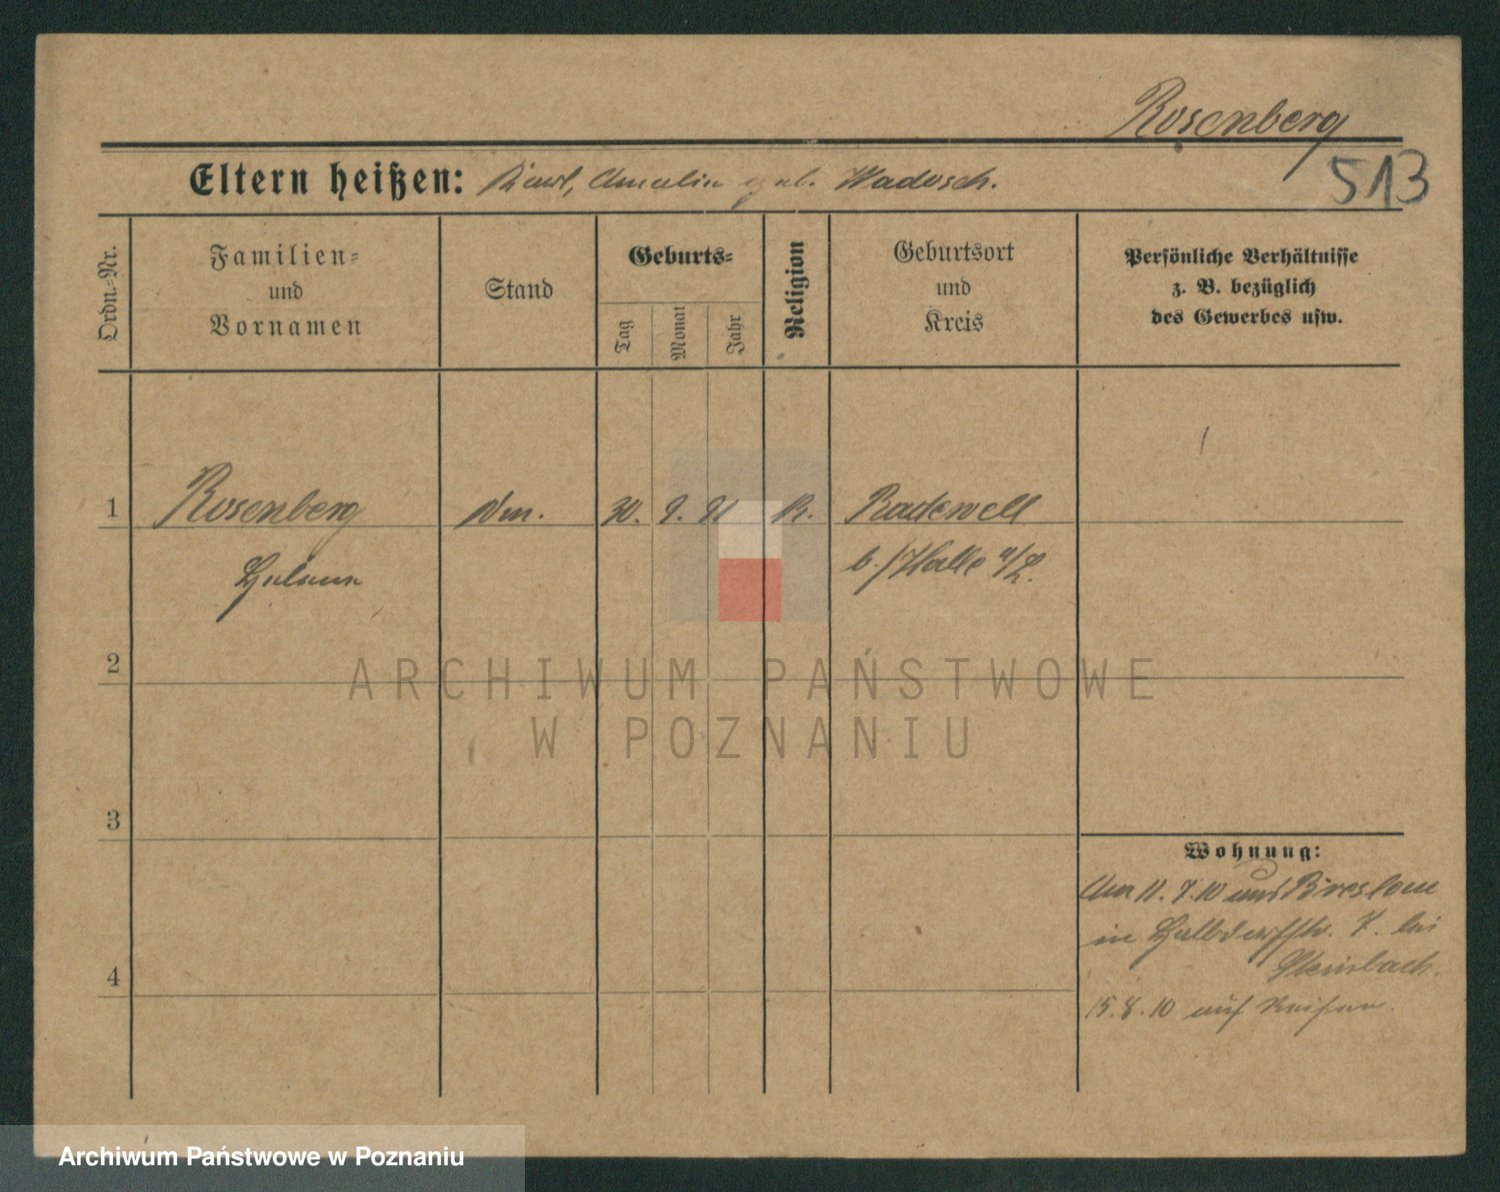 Rosenberg
513
Eltern heißen: Karl, Amalie geb. Wadusch.
Ordn.-Nr.
Familien-
und
Vornamen
Stand
Geburts-
Tag
Monat
Jahr
Religion
Geburtsort
und
Kreis
Persönliche Verhältnisse
z. B. bezüglich
des Gewerbes usw.
1 Rosenberg 30. 9. 91 K. Radewell
Helene b./Halle a/L.
2
3
4
Wohnung:
Am 11. 7. 10 aus Breslau
in Halbdorfstr. 7. bei
Steinbach.
15. 8. 10 auf Reisen.
ARCHIWUM PAŃSTWOWE
W POZNANIU
Archiwum Państwowe w Poznaniu